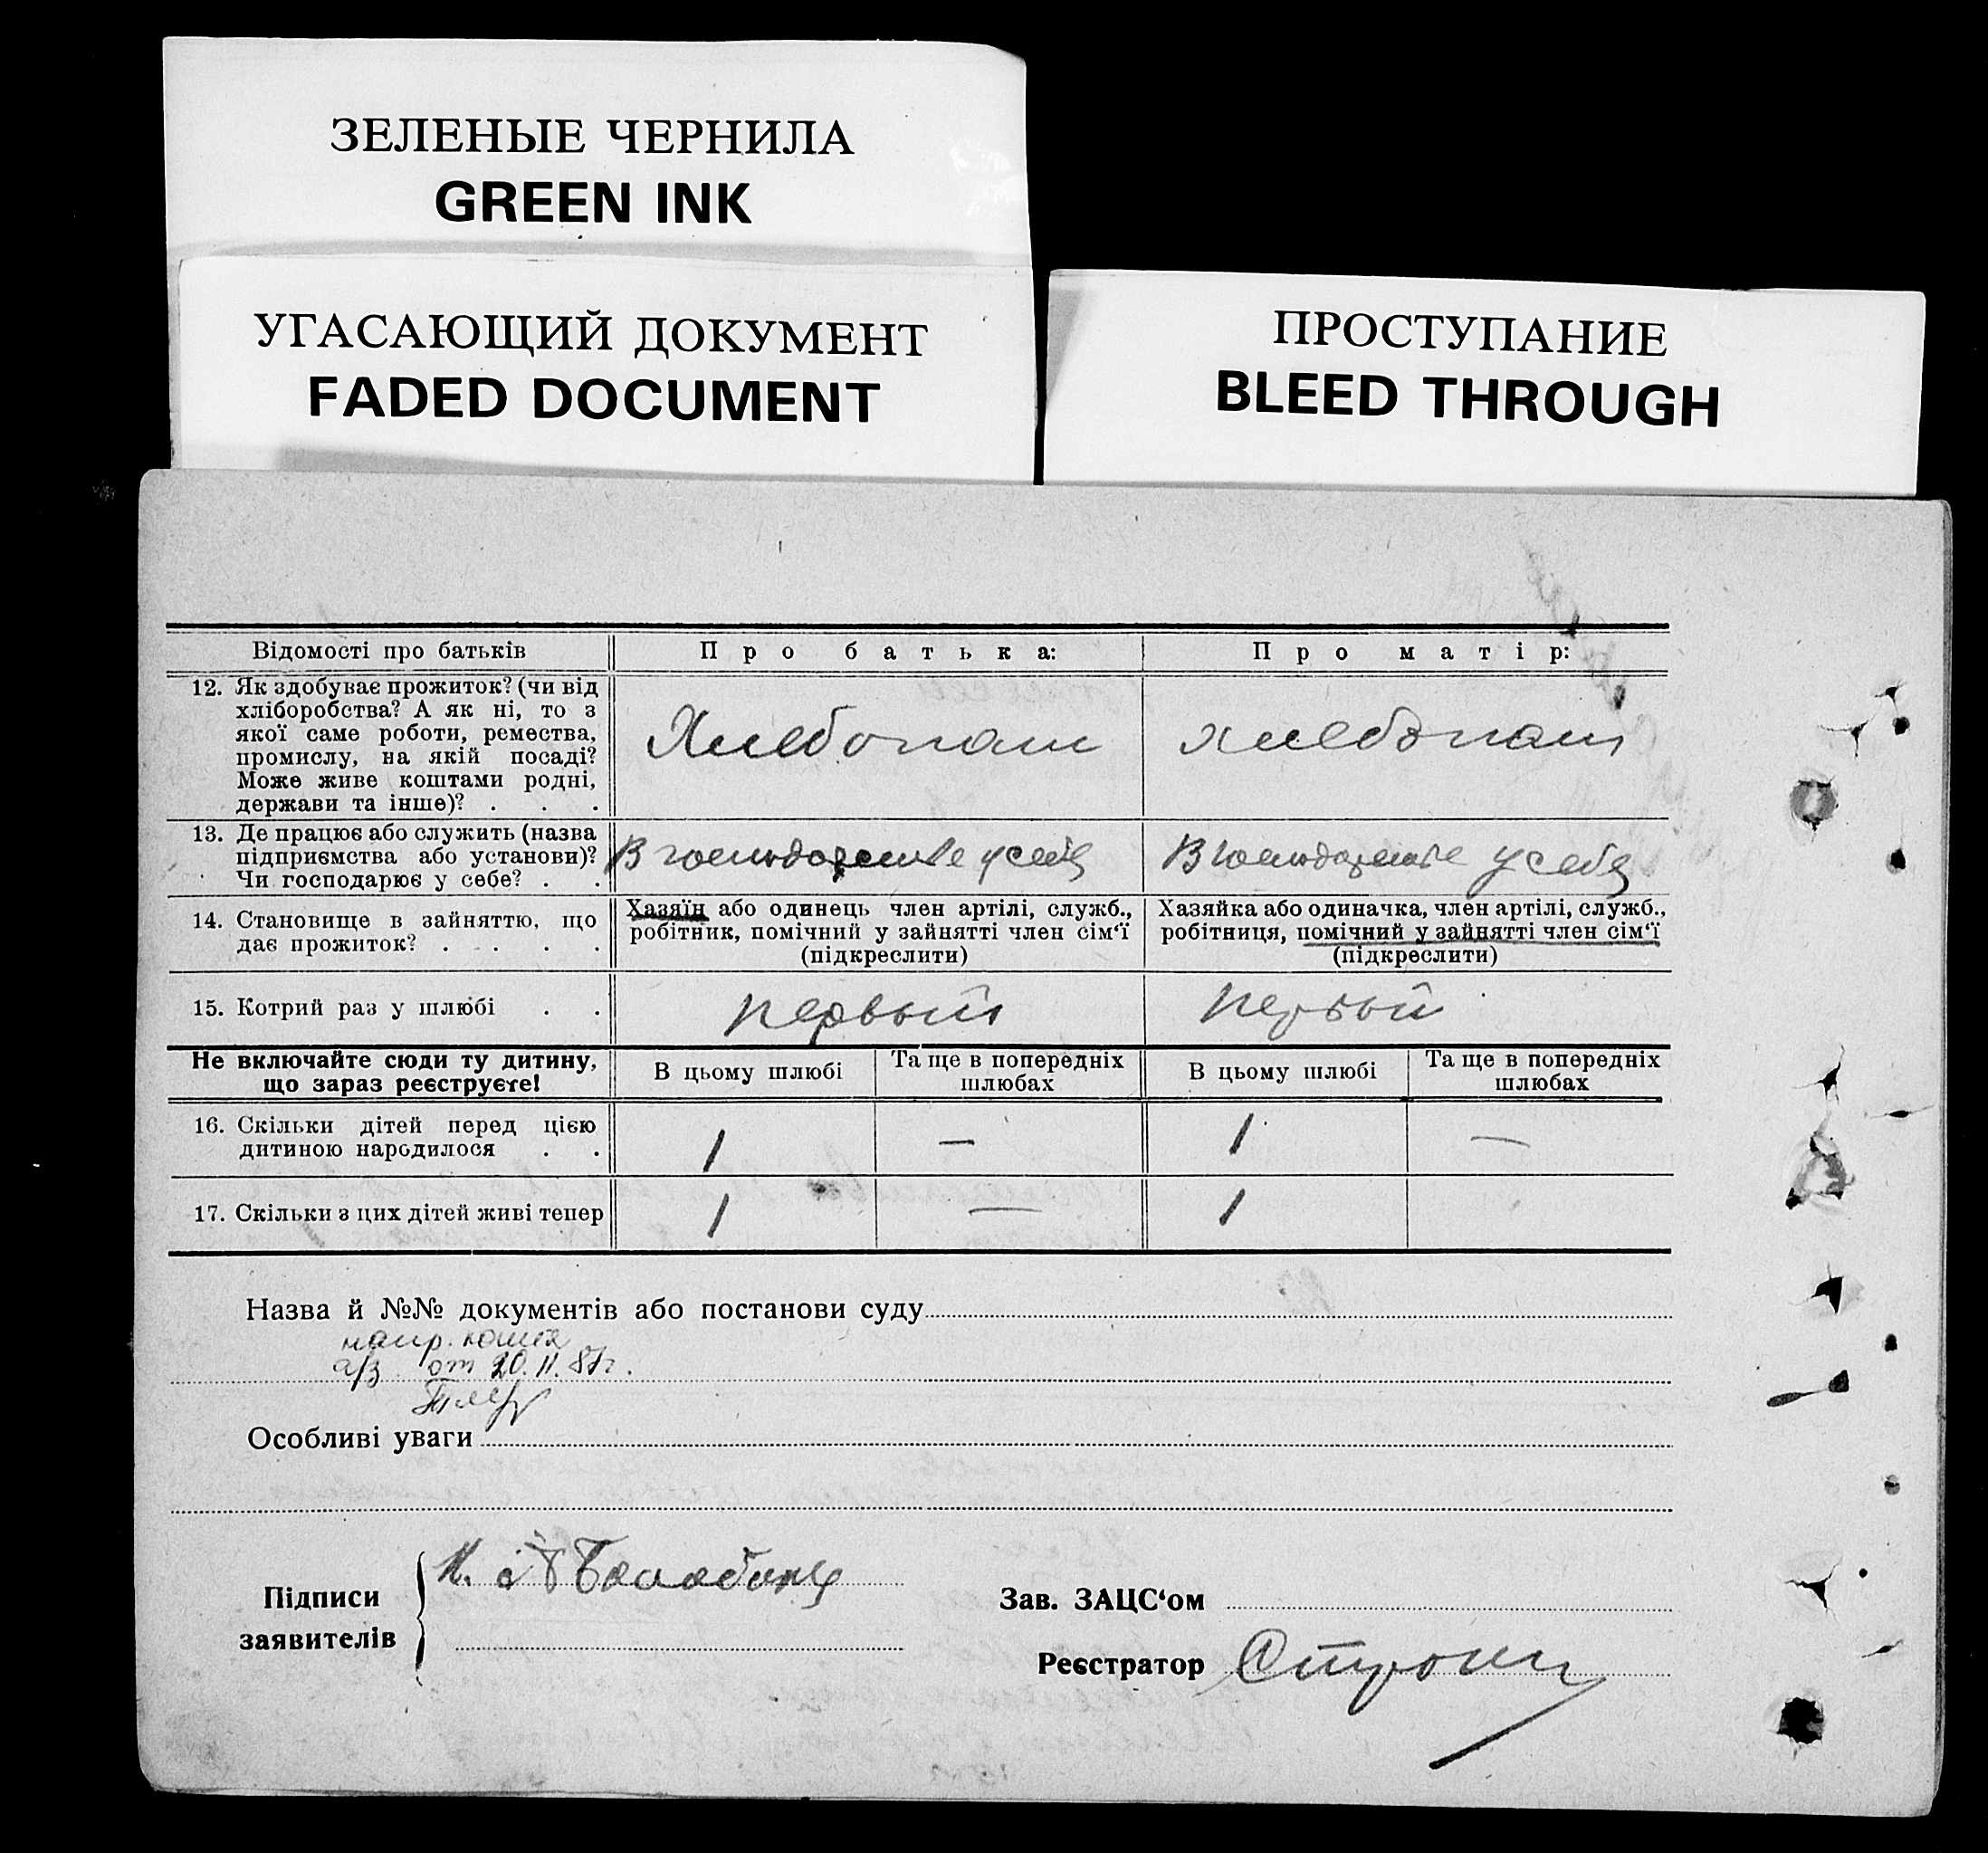 ЗЕЛЕНЫЕ ЧЕРНИЛА
GREEN INK
УГАСАЮЩИЙ ДОКУМЕНТ
FADED DOCUMENT
ПРОСТУПАНИЕ
BLEED THROUGH
Відомості про батьків Про батька: Про матір:
12. Як здобуває прожиток? (чи від
хліборобства? А як ні, то з
якої саме роботи, ремества,
промислу, на якій посаді?
Може живе коштами родні,
держави та інше)? . . .
Хлебопаш хлебопаш
13. Де працює або служить (назва
підприємства або установи)?
Чи господарює у себе? . .
В у себя В у себя
14. Становище в зайняттю, що
дає прожиток? . . . .
Хазяїн або одинець член артілі, служб.,
робітник, помічний у зайнятті член сім‘ї
(підкреслити)
Хазяйка або одиначка, член артілі, служб.,
робітниця, помічний у зайнятті член сім‘ї
(підкреслити)
15. Котрий раз у шлюбі . . первый первый
Не включайте сюди ту дитину,
що зараз реєструєте!
В цьому шлюбі Та ще в попередніх
шлюбах
В цьому шлюбі Та ще в попередніх
шлюбах
16. Скільки дітей перед цією
дитиною народилося . .
1 — 1 —
17. Скільки з цих дітей живі тепер 1 — 1
Назва й №№ документів або постанови суду
а/з от 20.11.87г.
Особливі уваги
Підписи
заявителів
Зав. ЗАЦС‘ом
Реєстратор